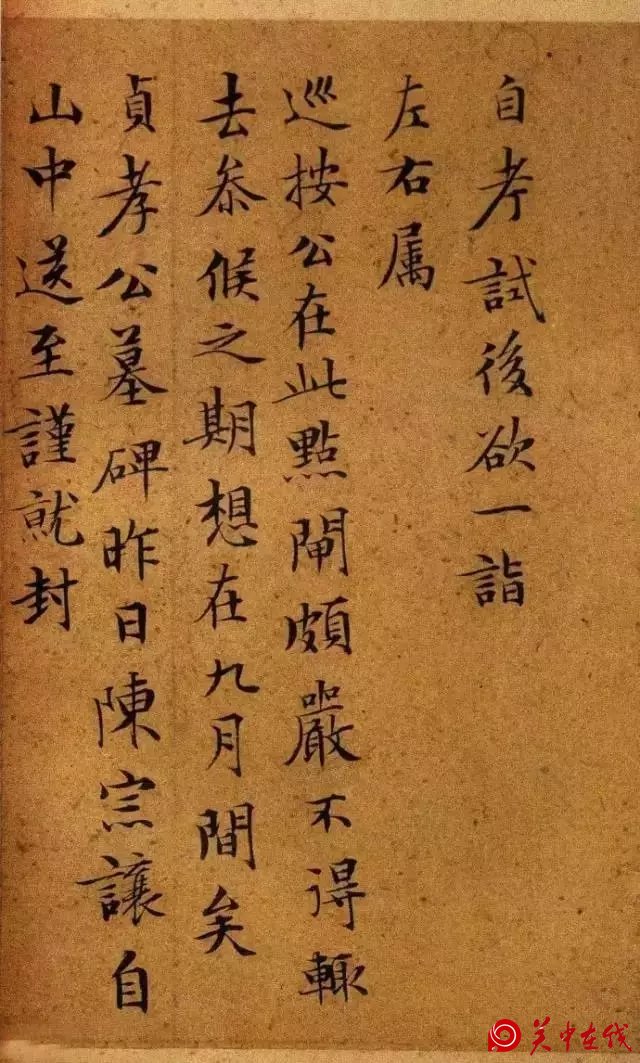 自考試後欲一詣
左右属
巡按公在此點閘頗嚴不得輙
去叅候之期想在九月間矣
貞孝公墓碑昨日陳宗讓自
山中送至謹就封
关中在线